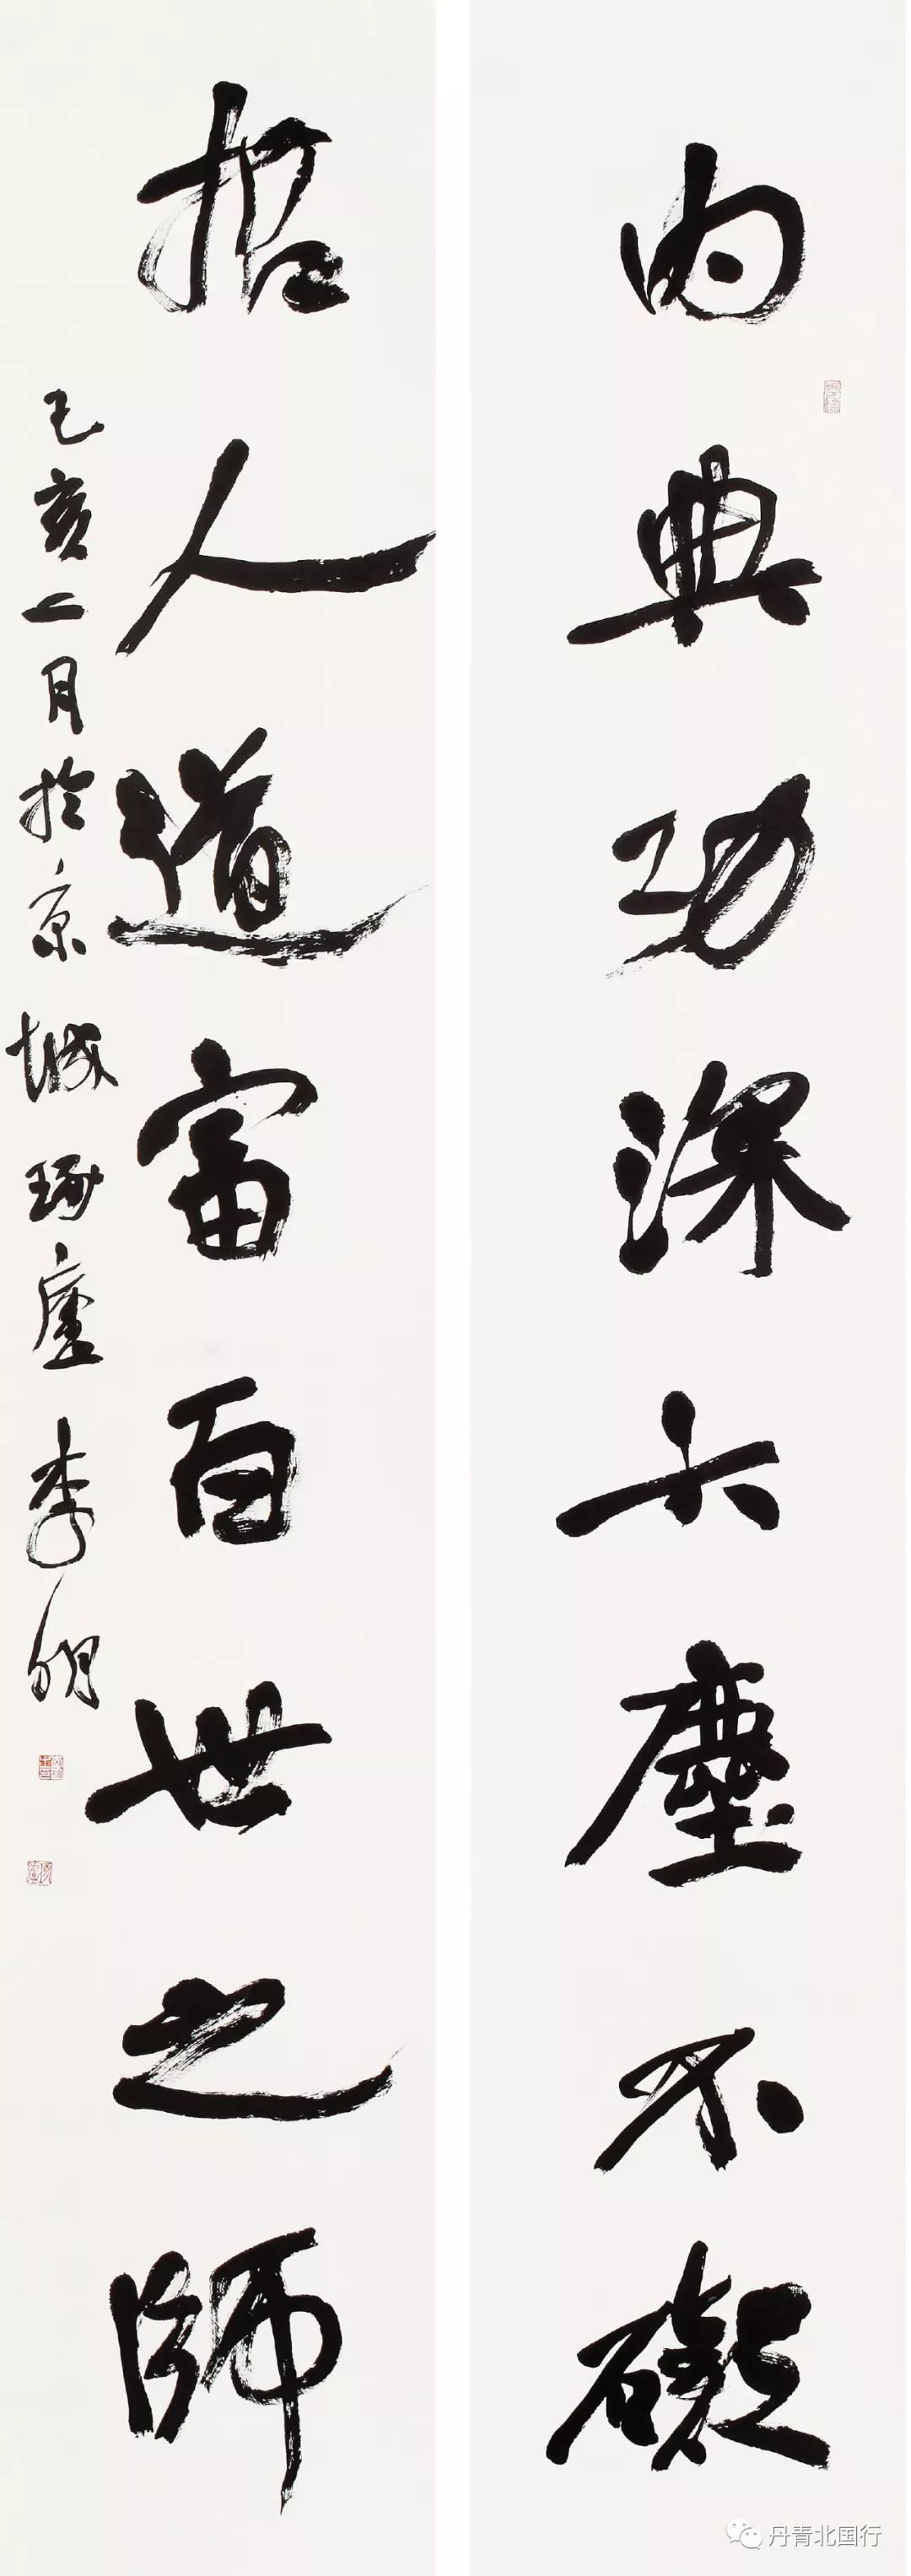 内典功深六塵不礙
哲人道富百世之師
己亥二月於京城琢廬李明
丹青北国行